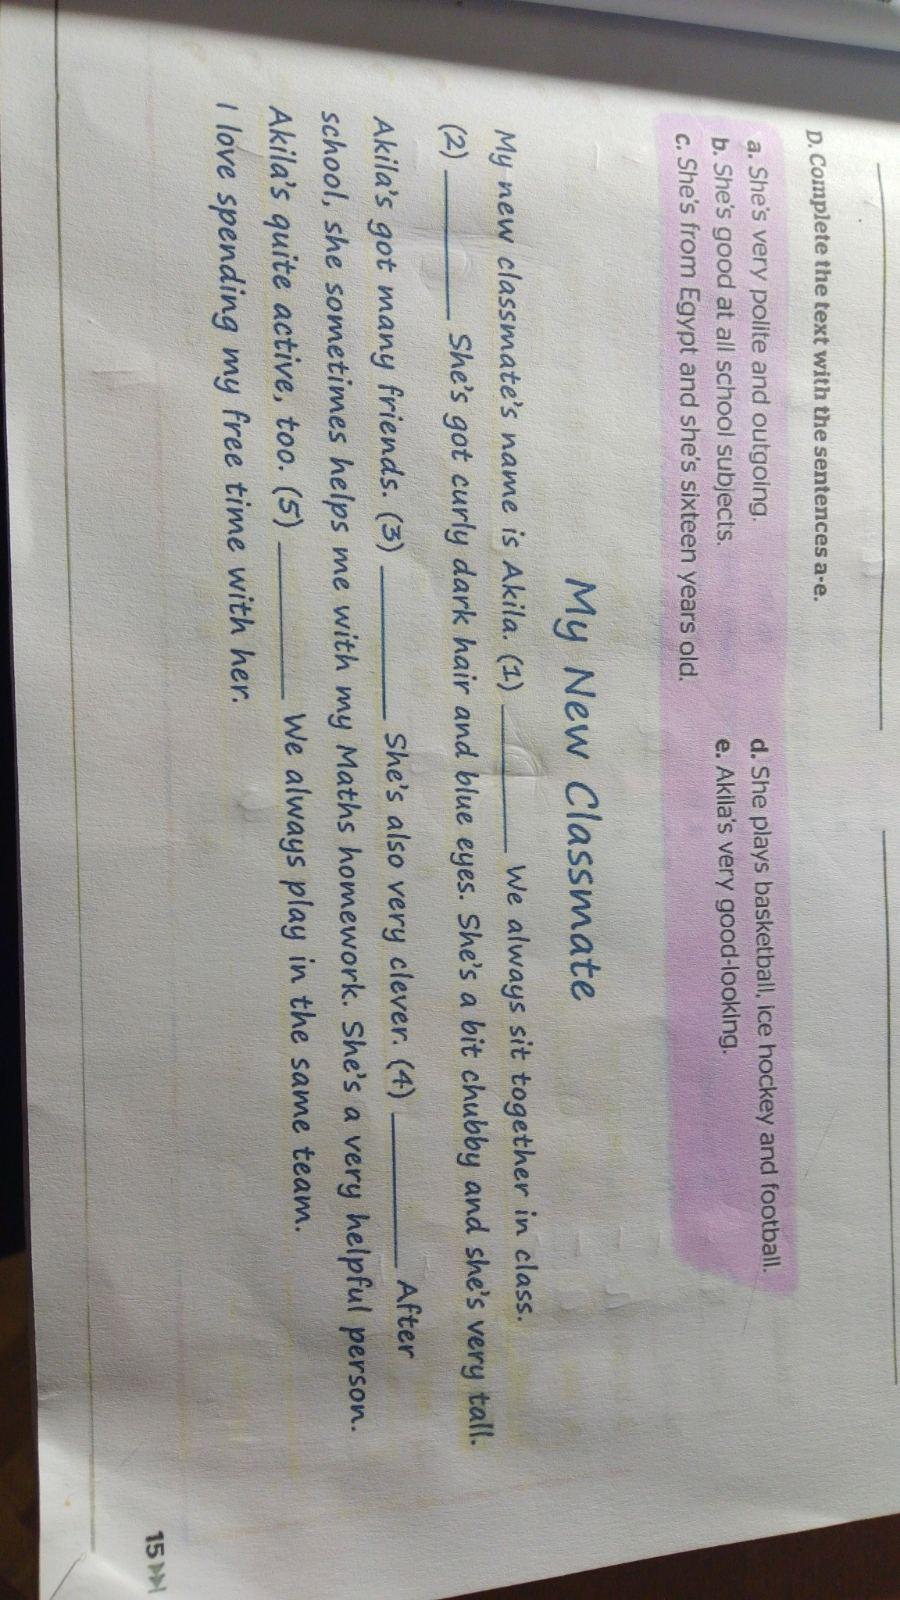 D. Complete the text with the sentences a-e.
a. She's very polite and outgoing.
b. She's good at all school subjects.
c. She's from Egypt and she's sixteen years old.
d. She plays basketball, ice hockey and football.
e. Akila's very good-looking.
My New Classmate
My new classmate's name is Akila. (1) __________ We always sit together in class.
(2) __________ She's got curly dark hair and blue eyes. She's a bit chubby and she's very tall.
Akila's got many friends. (3) __________ She's also very clever. (4) __________ After
school, she sometimes helps me with my Maths homework. She's a very helpful person.
Akila's quite active, too. (5) __________ We always play in the same team.
I love spending my free time with her.
15